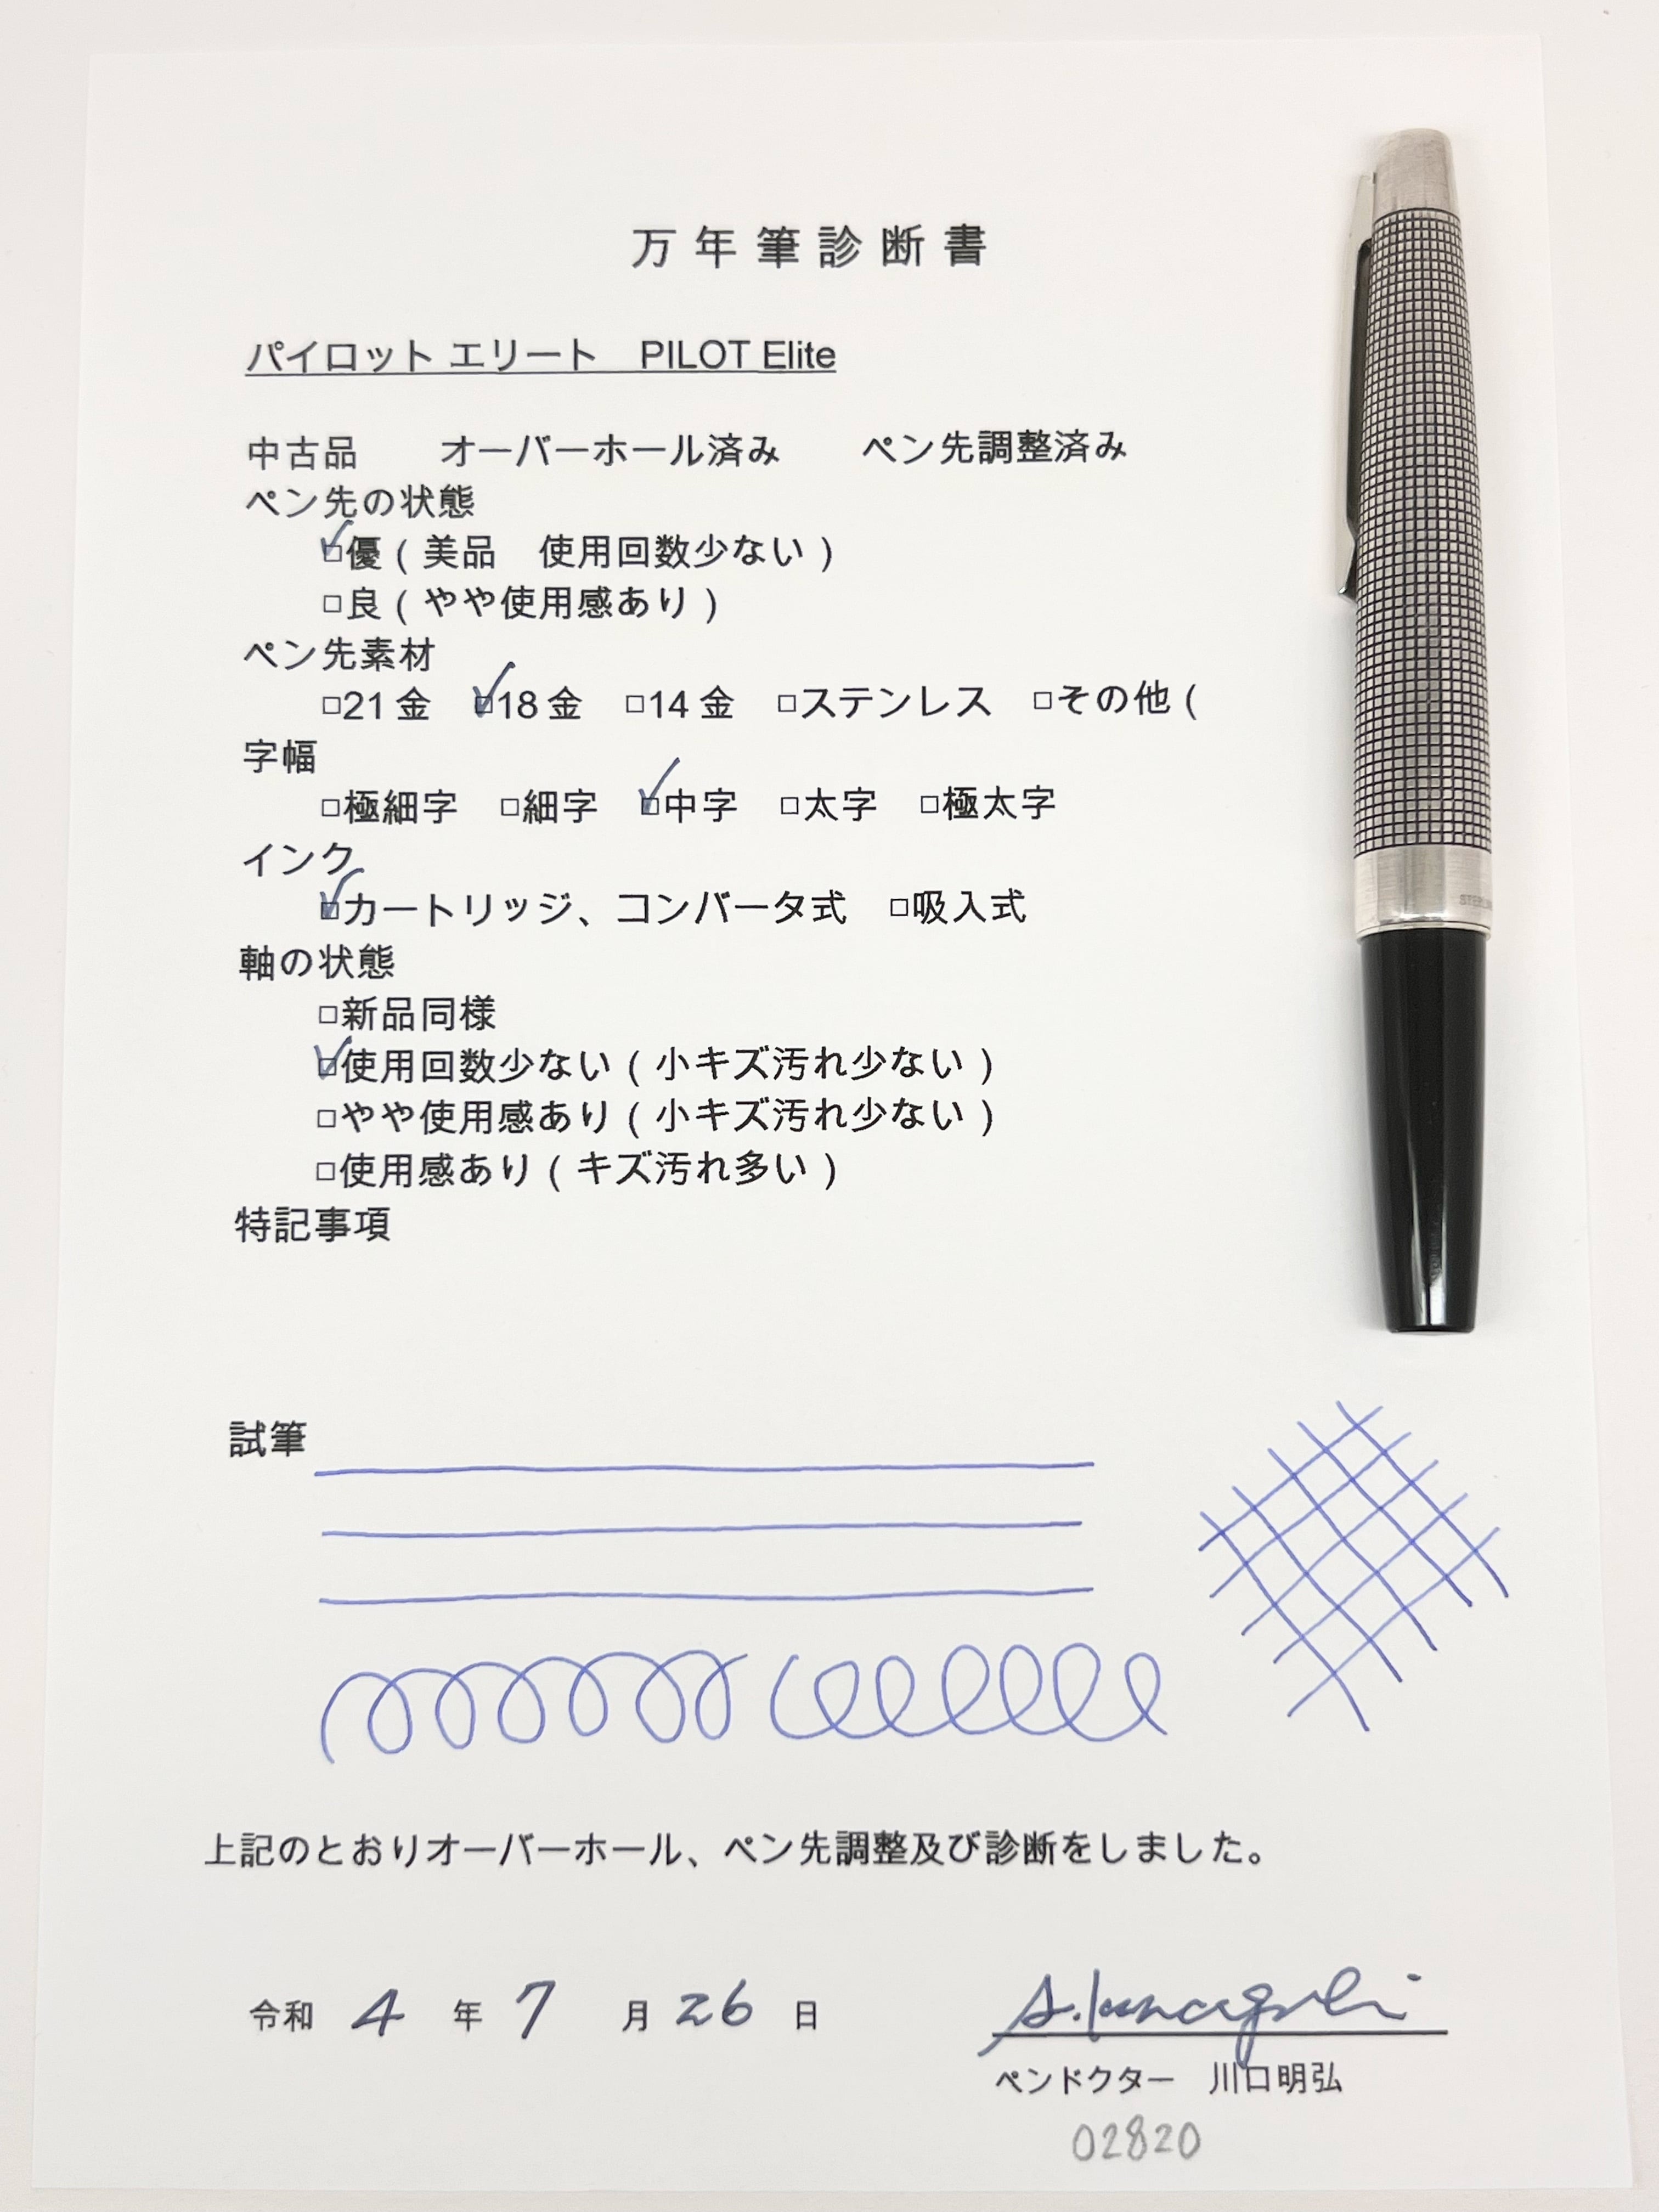 万年筆診断書
パイロット エリート　PILOT Elite
中古品　　オーバーホール済み　　ペン先調整済み
ペン先の状態
☑優（美品　使用回数少ない）
□良（やや使用感あり）
ペン先素材
□21金　☑18金　□14金　□ステンレス　□その他（
字幅
□極細字　□細字　☑中字　□太字　□極太字
インク
☑カートリッジ、コンバータ式　□吸入式
軸の状態
□新品同様
☑使用回数少ない（小キズ汚れ少ない）
□やや使用感あり（小キズ汚れ少ない）
□使用感あり（キズ汚れ多い）
特記事項
試筆
上記のとおりオーバーホール、ペン先調整及び診断をしました。
令和 4 年 7 月 26 日
ペンドクター　川口明弘
02820